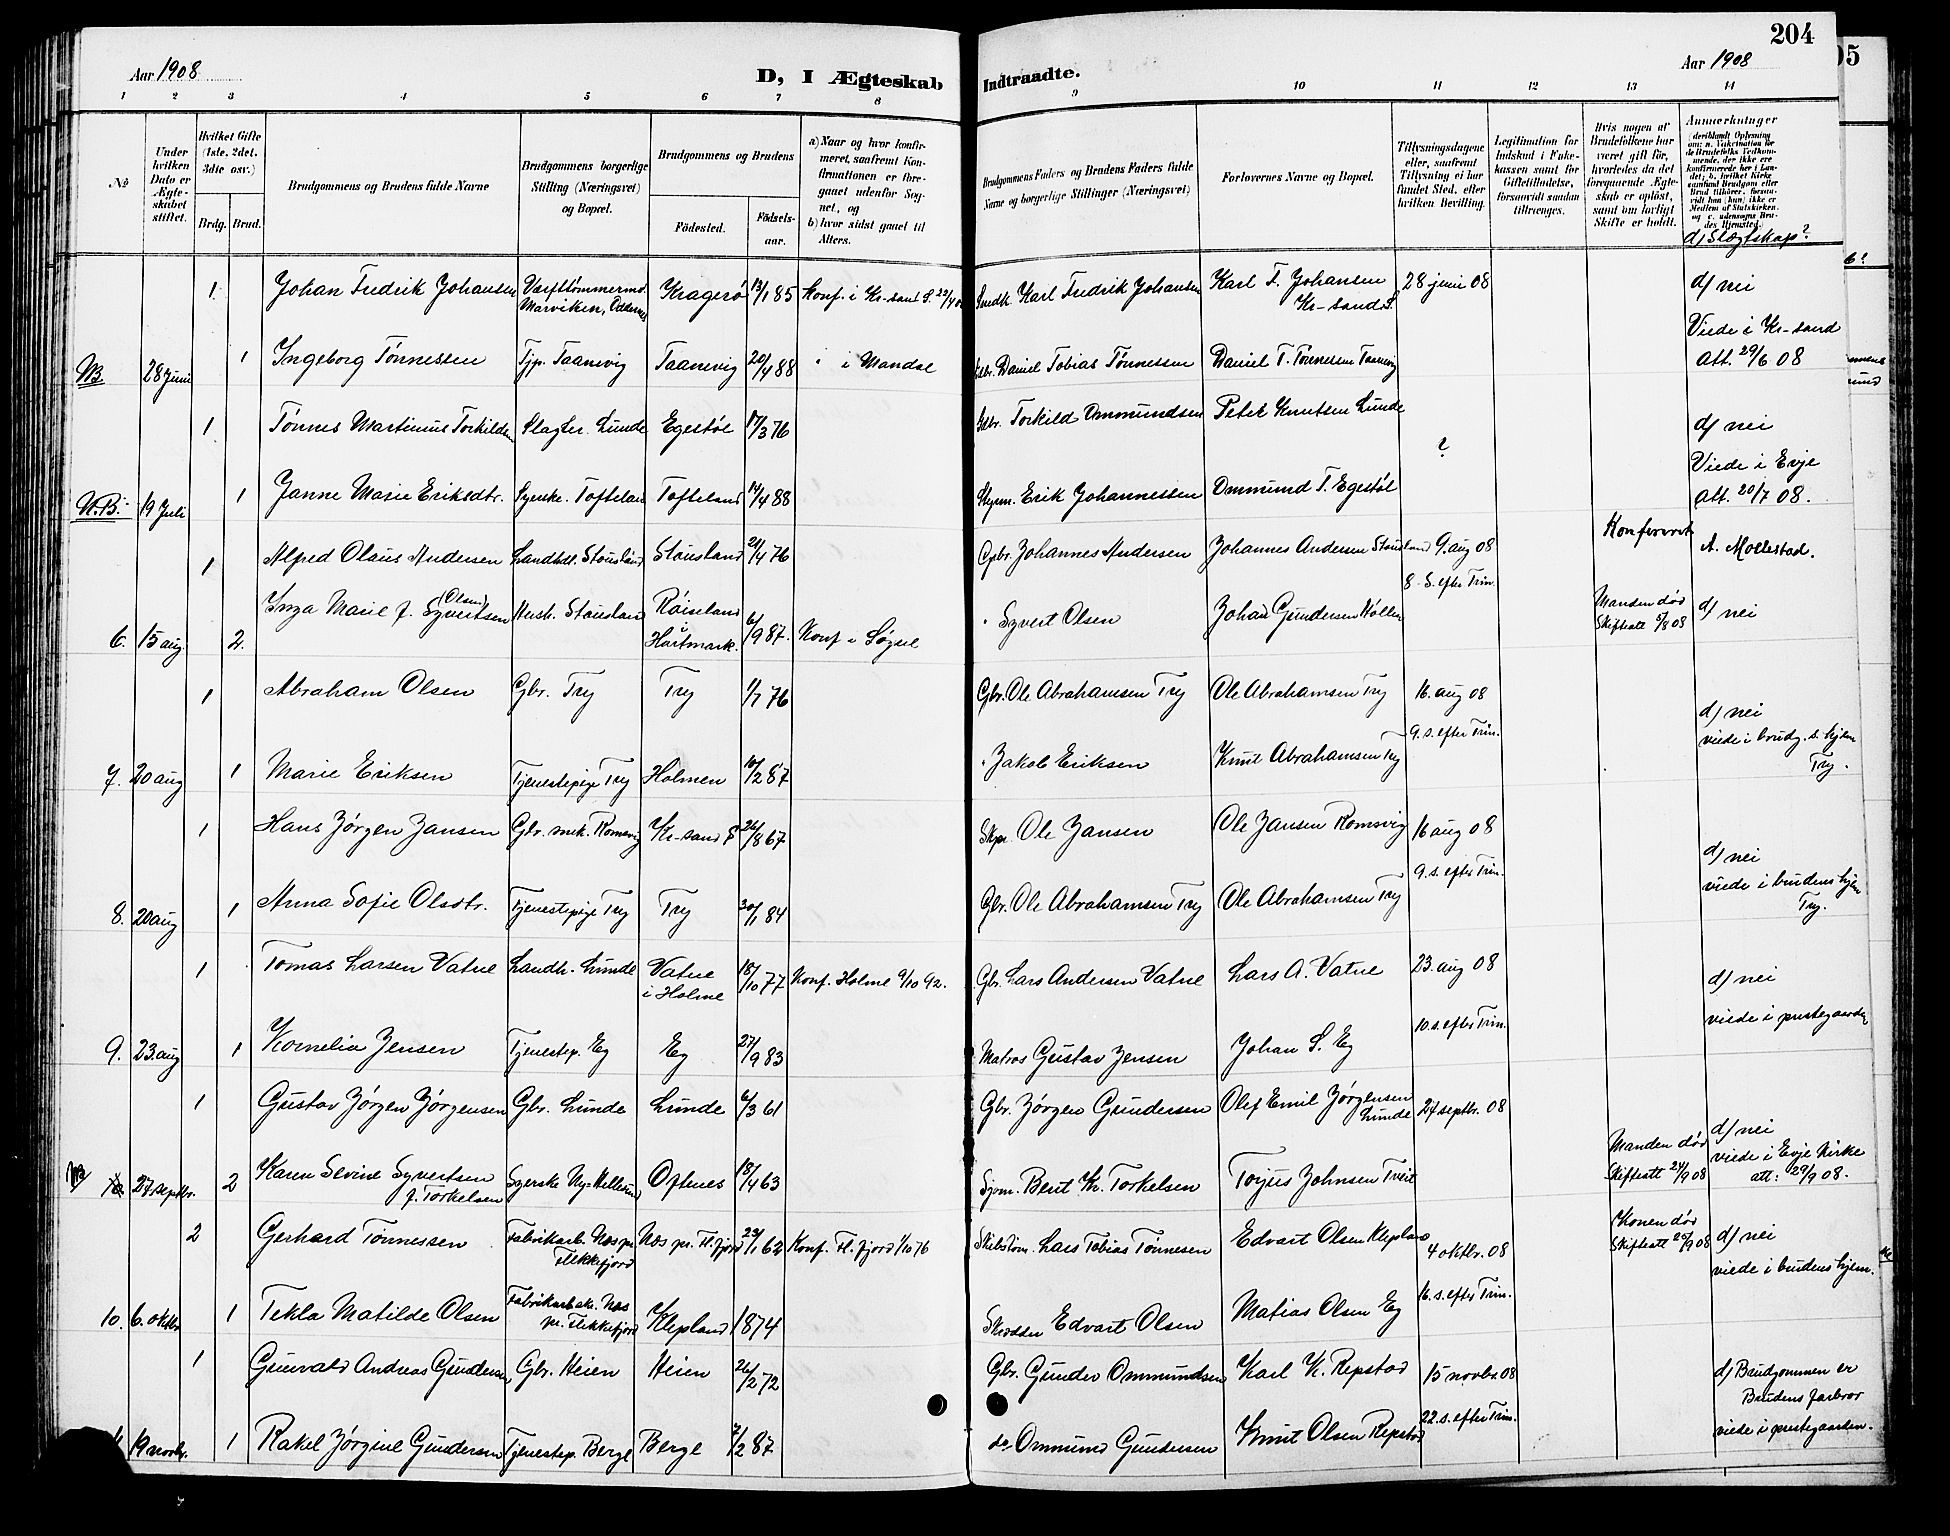 204
Aar 1908
D, I Ægteskab
Indtraadte.
Aar 1908
1 2 3 4 5 6 7 8 9 10 11 12 13 14
№
Under hvilken Dato er Ægteskabet stiftet.
Hvilket Gifte (1ste, 2det, 3die osv.)
Brdg. Brud.
Brudgommens og Brudens fulde Navne
Brudgommens borgerlige Stilling (Næringsvei) og Bopæl.
Brudgommens og Brudens
Fødested.
Fødselsaar.
a) Naar og hvor konfirmeret, saafremt Konfirmationen er foregaaet udenfor Sognet, og
b) hvor sidst gaaet til Alters.
Brudgommens Faders og Brudens Faders fulde Navne og borgerlige Stillinger (Næringsvei)
Forlovernes Navne og Bopæl.
Tillysningsdagene eller, saafremt Tillysning ei har fundet Sted, efter hvilken Bevilling.
Legitimation for Indskud i Enkekassen samt for Giftetilladelse, forsaavidt saadan tiltrænges.
Hvis nogen af Brudefolkene har været gift før, hvorledes da det foregaaende Ægteskab er opløst, samt om lovligt Skifte er holdt.
Anmærkninger
(deriblandt Oplysning om: a. Vakcination for de Brudefolks Vedkommende, der ikke ere konfirmerede her i Landet; b. hvilket Kirkesamfund Brudgom eller Brud tilhører, forsaavidt han (hun) ikke er Medlem af Statskirken, og c. udensogns Brudes Hjemsted.
d) Slægtskap?
1 Johan Fredrik Johansen Værftstømmermd. Marviken, Oddernes Kragerø 13/1 85 Konf. i Kr-sand S. Karl Fredrik Johansen Karl F. Johansen Kr-sand S. 28 juni 08 d) nei
NB 28 Juni 1 Ingeborg Tønnessen Tjp. Taanevig Taanevig 20/4 88 " i Mandal Daniel Tobias Tønnessen Daniel T. Tønnessen Taanevig Viede i Kr-sand att. 29/6 08
1 Tønnes Martinius Torkildsen Slagter. Lunde Egestøl 17/3 76 Torkild Ommundsen Peter Knutsen Lunde ? d) nei
N.B. 19 Juli 1 Janne Marie Eriksdtr. Syerske. Tofteland Tofteland 14/4 88 Erik Johannessen Ommund T. Egestøl Viede i Evje att. 20/7 08.
1 Alfred Olaus Andersen Landhdl. Stousland Stousland 21/4 76 Gbr. Johannes Andersen Johannes Andersen Stousland 9. aug 08 Konfererert A. Mollestad.
6. 15 aug. 2. Inga Marie f. Syvertsen (Olsen) Hush. Stausland Røiseland i Hartmark. 6/9 87. Konf i Søgne " Syvert Olsen Johan Gundersen Høllen 8. S. efter Trin. Manden død Skifteatt 5/8 08 d) nei
1 Abraham Olsen Gbr. Try Try 1/7 76 Gbr. Ole Abrahamsen Try Ole Abrahamsen Try 16. aug 08 d) nei
7. 20 aug 1 Marie Eriksen Tjenestepige Try Holmen 10/2 87 " Jakob Eriksen Knut Abrahamsen Try 9. s. efter Trin. viede i brudg. s. hjem Try.
1 Hans Jørgen Jansen Gbr. snek. Romsvig Kr-sand S 26/8 67 Skpr. Ole Jansen Ole Jansen Romsvig 16 aug 08 d) nei
8. 20 aug 1 Anna Sofie Olsdtr. Tjenestepige Try Try 30/1 84 Gbr. Ole Abrahamsen Try Ole Abrahamsen Try 9. s. efter Trin. viede i brudens hjem Try.
1 Tomas Larsen Vatne Landh. Lunde Vatne i Holme 18/10 77 Konf. Holme 9/10 92. Gbr. Lars Andersen Vatne Lars A. Vatne 23. aug 08 d) nei
9. 23. aug 1 Kornelia Jensen Tjenestep. Eg Eg 27/9 83 Matros Gustav Jensen Johan S. Eg 10. s. efter Trin. viede i prestegaarden
1 Gustav Jørgen Jørgensen Gbr. Lunde Lunde 6/3 61 Gbr. Jørgen Gundersen Olef Emil Jørgensen Lunde 27 septbr. 08 d) nei
NB 10. 27 septbr. 2 Karen Sevine Syvertsen f. Torkelsen Syerske Ny-Hellesund Oftenes 18/4 63 Sjøm. Bent Kr. Torkelsen Torjus Johnsen Tveit Manden død Skifteatt 24/9 08 viede i Evje kirke att: 29/9 08.
2 Gerhard Tønnessen Fabrikarb. Næs pr. Flekkefjord Næs pr. Fl. fjord 23/1 62 Konf. Fl. fjord 1/10 76 Skibstøm. Lars Tobias Tønnesen Edvart Olsen Klepland 4 oktbr. 08 Konen død Skifteatt 25/9 08 d) nei
10. 6. oktbr 1 Tekla Matilde Olsen Fabrikarbske. Næs pr. Flekkefjord Klepland 1874 Skrædder Edvart Olsen Matias Olsen Eg 16. s. efter Trin. viede i brudens hjem.
1 Gunvald Andreas Gundersen Gbr. Heien Heien 26/2 72 Gbr. Gunder Ommundsen Karl K. Repstad 15 novbr. 08 d) Brudgommen er Brudens farbror
19 novbr. 1 Rakel Jørgine Gundersen Tjenestep. Berge Berge 7/2 87 do Ommund Gundersen Knut Olsen Repstad 22. s. efter Trin. viede i prestegaarden.